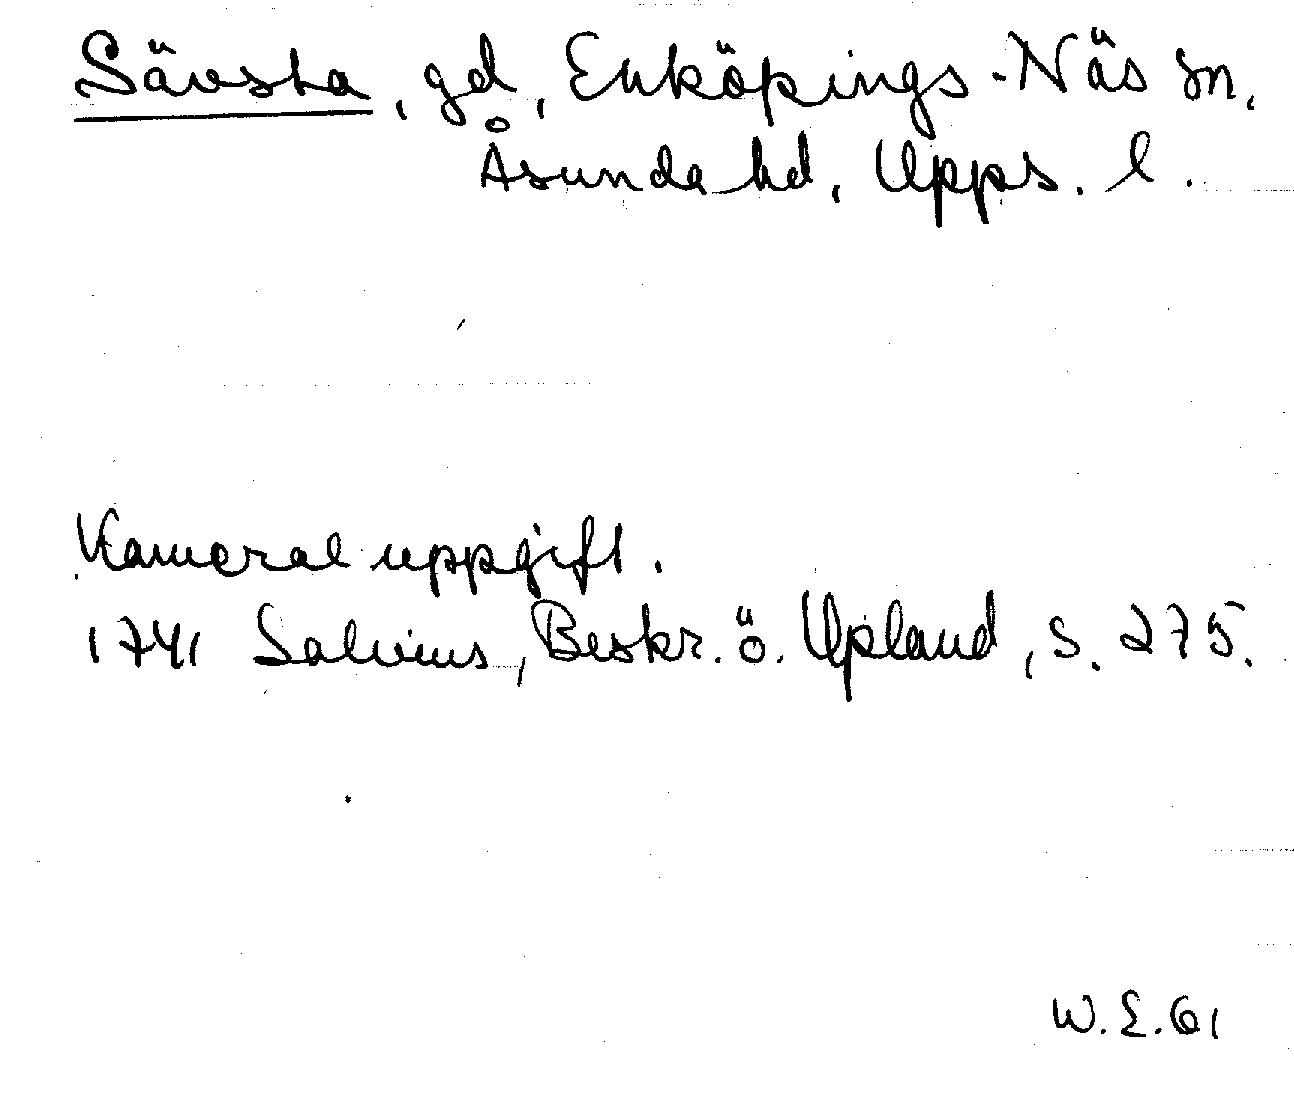 Sävsta, gd, Enköpings-Näs sn,
Åsunda hd, Upps. l.
Kameral uppgift.
1741 Salvius, Beskr. ö. Upland, s. 275.
W. E. 61